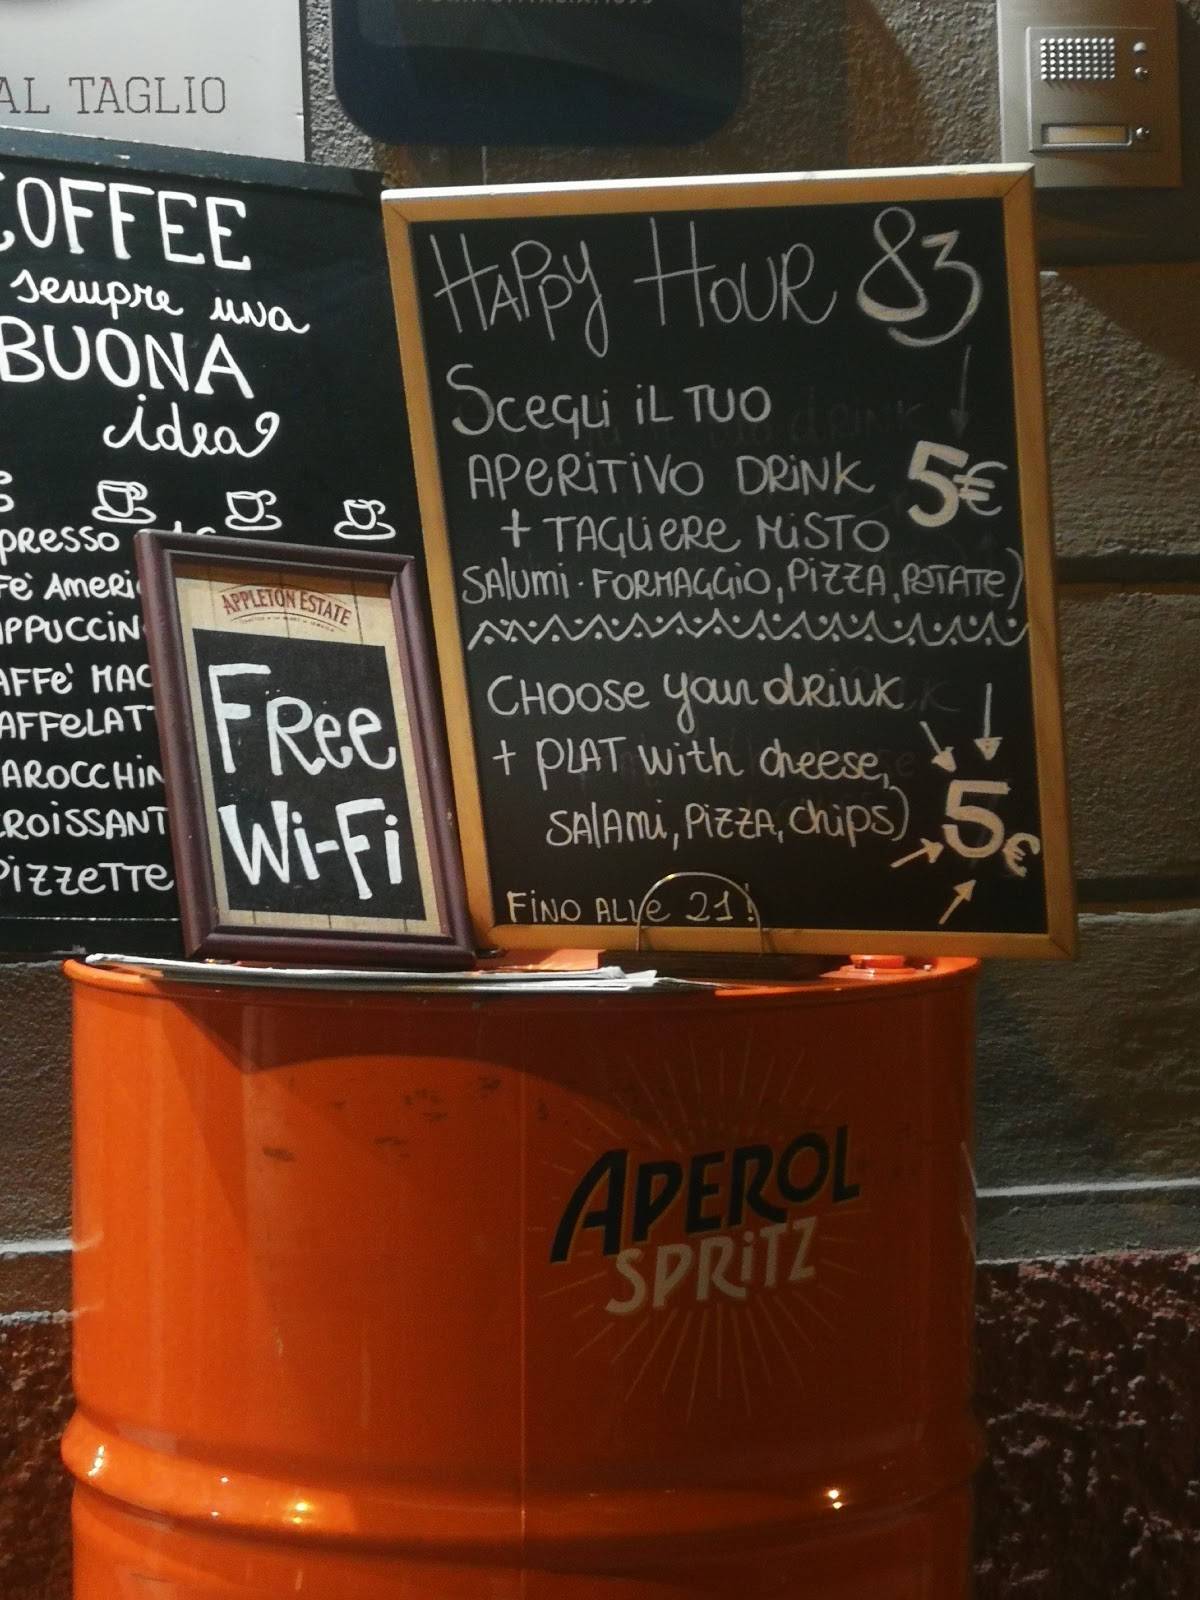 AL TAGLIO
COFFEE
sempre una
BUONA
idea
AMERI
Happy Hour 83
Scegli il TUO
APERITIVO DRINK 5€
+ TAGLIERE MISTO
SALUMI. FORMAGGIO, PIZZA, PATATE)
CHOOSE your drink
+ PLAT with cheese,
SALAMI, PIZZA, chips) 5€
FINO ALLE 21!
APPLETON ESTATE
FRee
Wi-Fi
CROISSANT
PIZZETTE
APEROL
SPRITZ